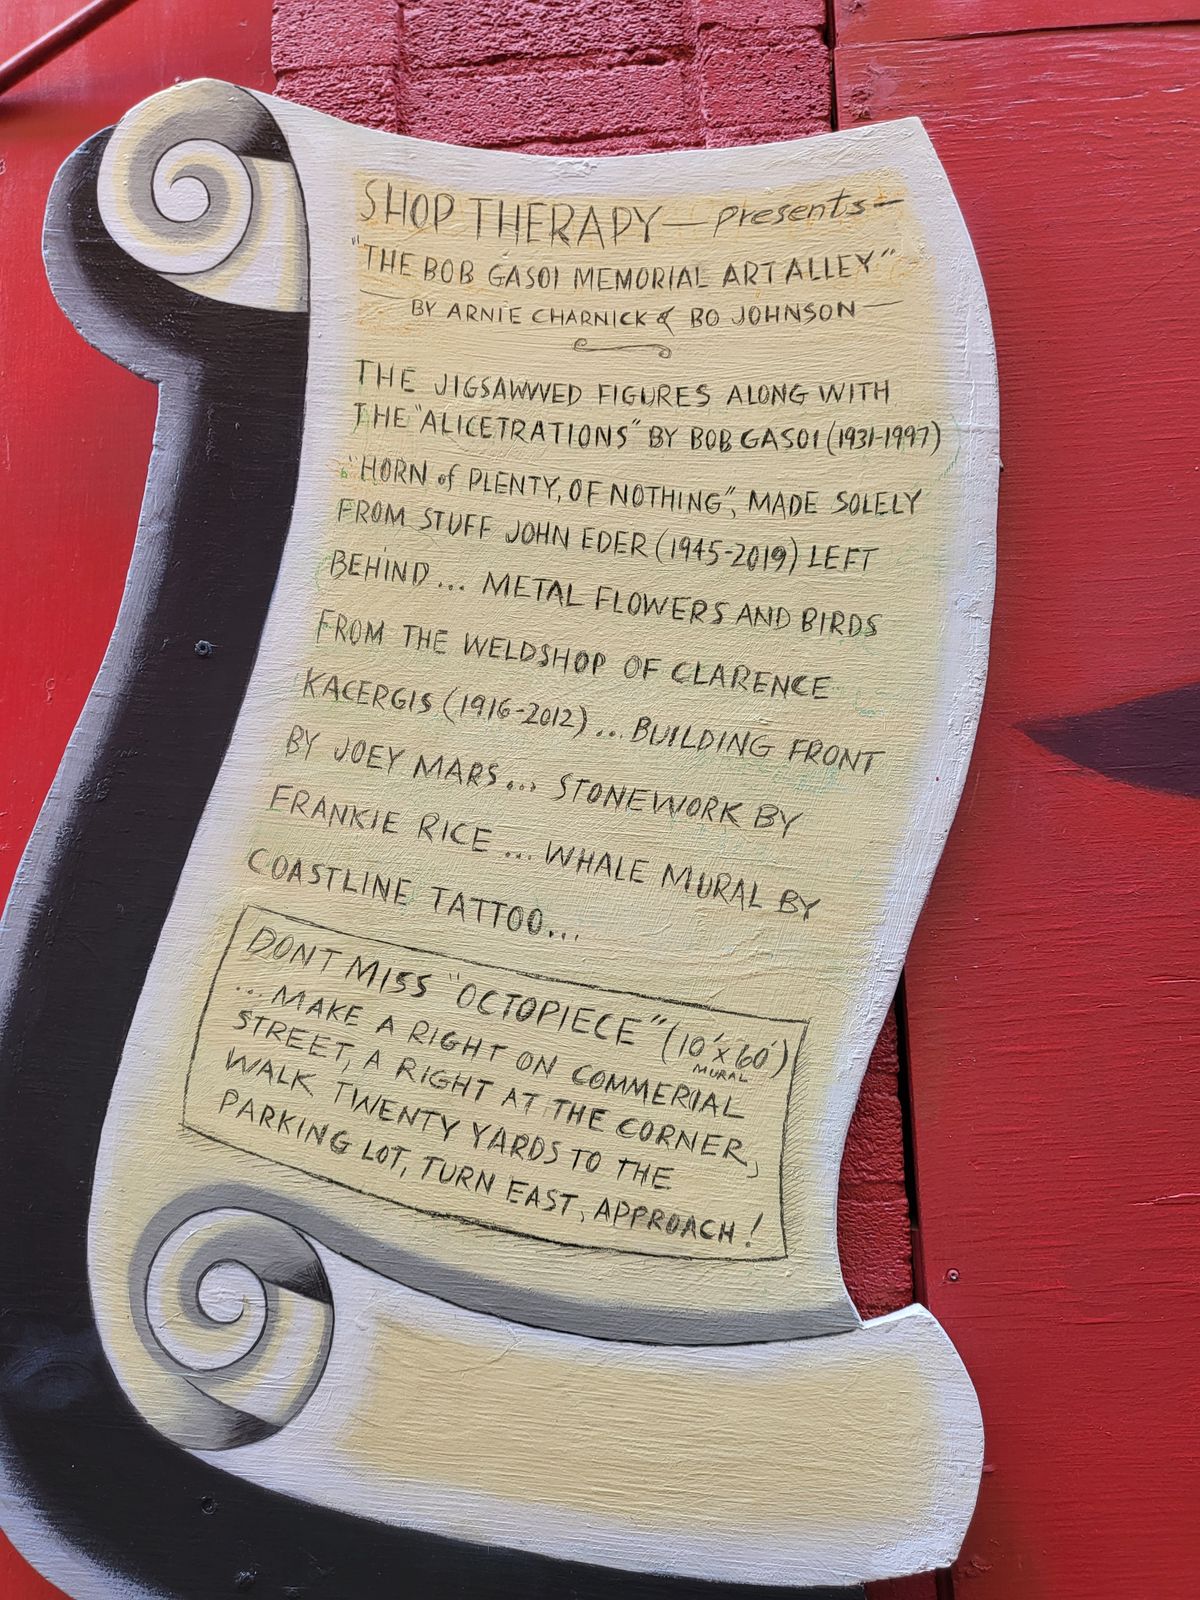 SHOP THERAPY — presents —
"THE BOB GASOI MEMORIAL ART ALLEY"
— BY ARNIE CHARNICK & BO JOHNSON —
THE JIGSAWWED FIGURES ALONG WITH
THE "ALICETRATIONS" BY BOB GASOI (1931-1997)
"HORN of PLENTY, OF NOTHING", MADE SOLELY
FROM STUFF JOHN EDER (1945-2019) LEFT
BEHIND... METAL FLOWERS AND BIRDS
FROM THE WELDSHOP OF CLARENCE
KACERGIS (1916-2012)... BUILDING FRONT
BY JOEY MARS... STONEWORK BY
FRANKIE RICE... WHALE MURAL BY
COASTLINE TATTOO...
DONT MISS "OCTOPIECE" (10'x60')
MURAL
...MAKE A RIGHT ON COMMERIAL
STREET, A RIGHT AT THE CORNER,
WALK TWENTY YARDS TO THE
PARKING LOT, TURN EAST, APPROACH!